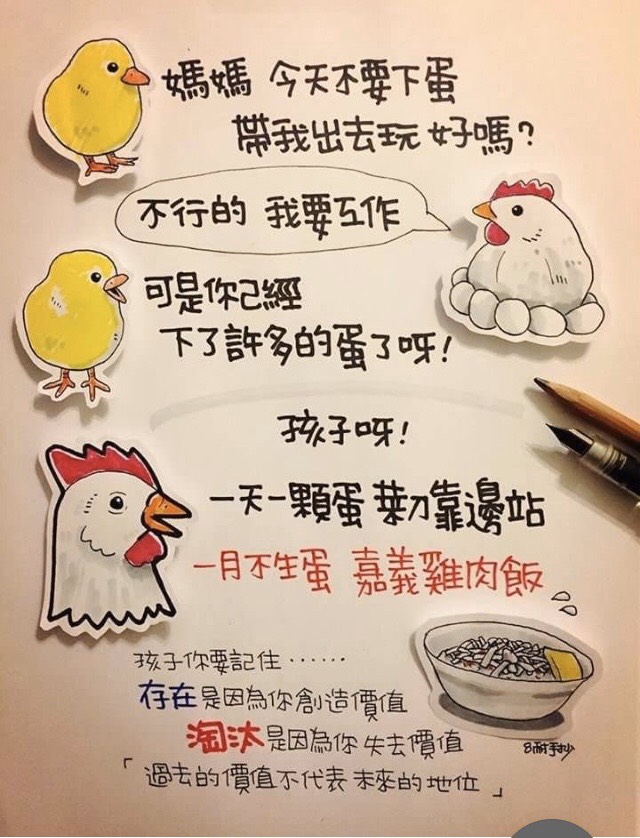 媽媽 今天不要下蛋
帶我出去玩 好嗎？
不行的 我要工作
可是你已經
下了許多的蛋了呀！
孩子呀！
一天一顆蛋 菜刀靠邊站
一月不生蛋 嘉義雞肉飯
孩子你要記住……
存在是因為你創造價值
淘汰是因為你失去價值
「過去的價值不代表未來的地位」